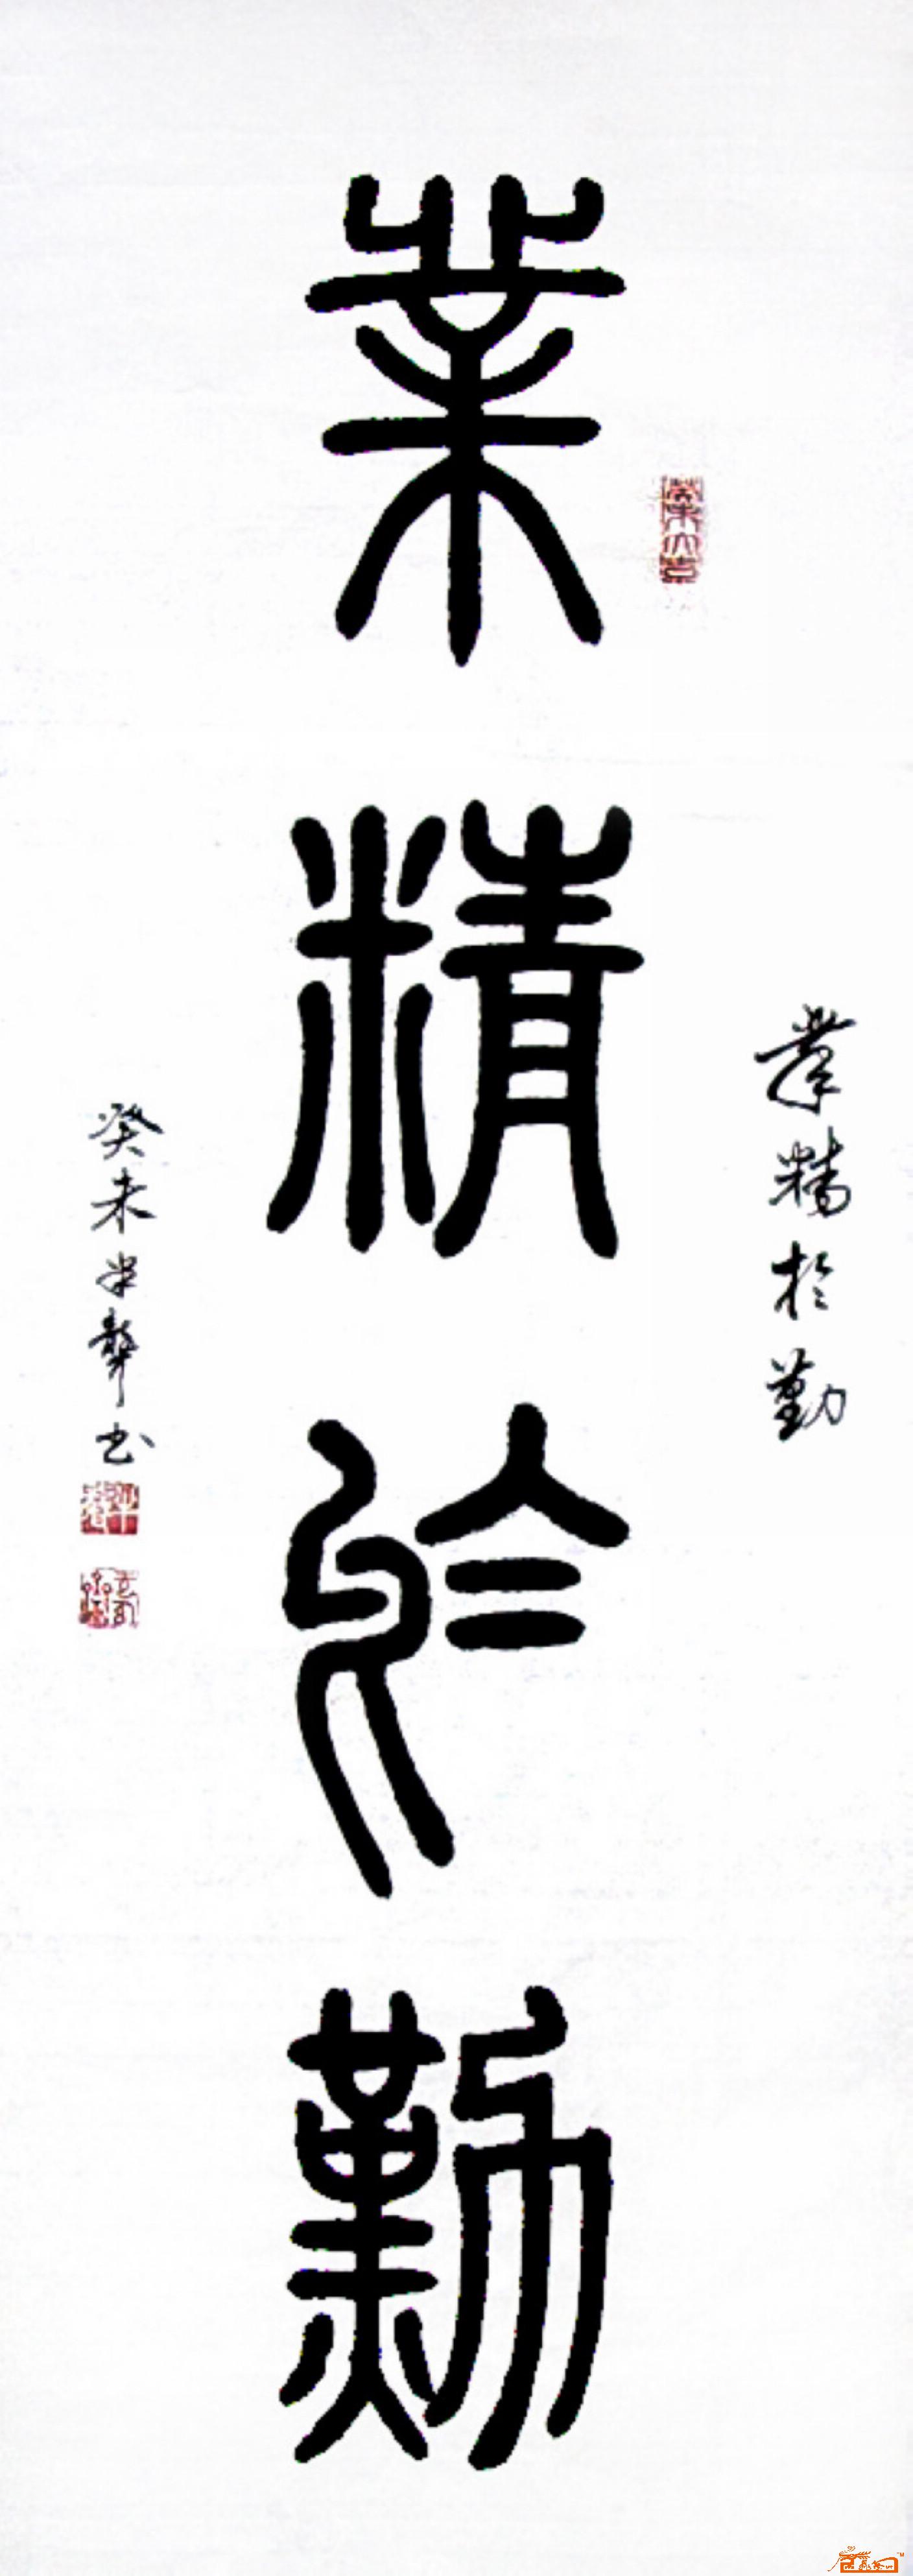 業精於勤
業精於勤
癸未半聾书